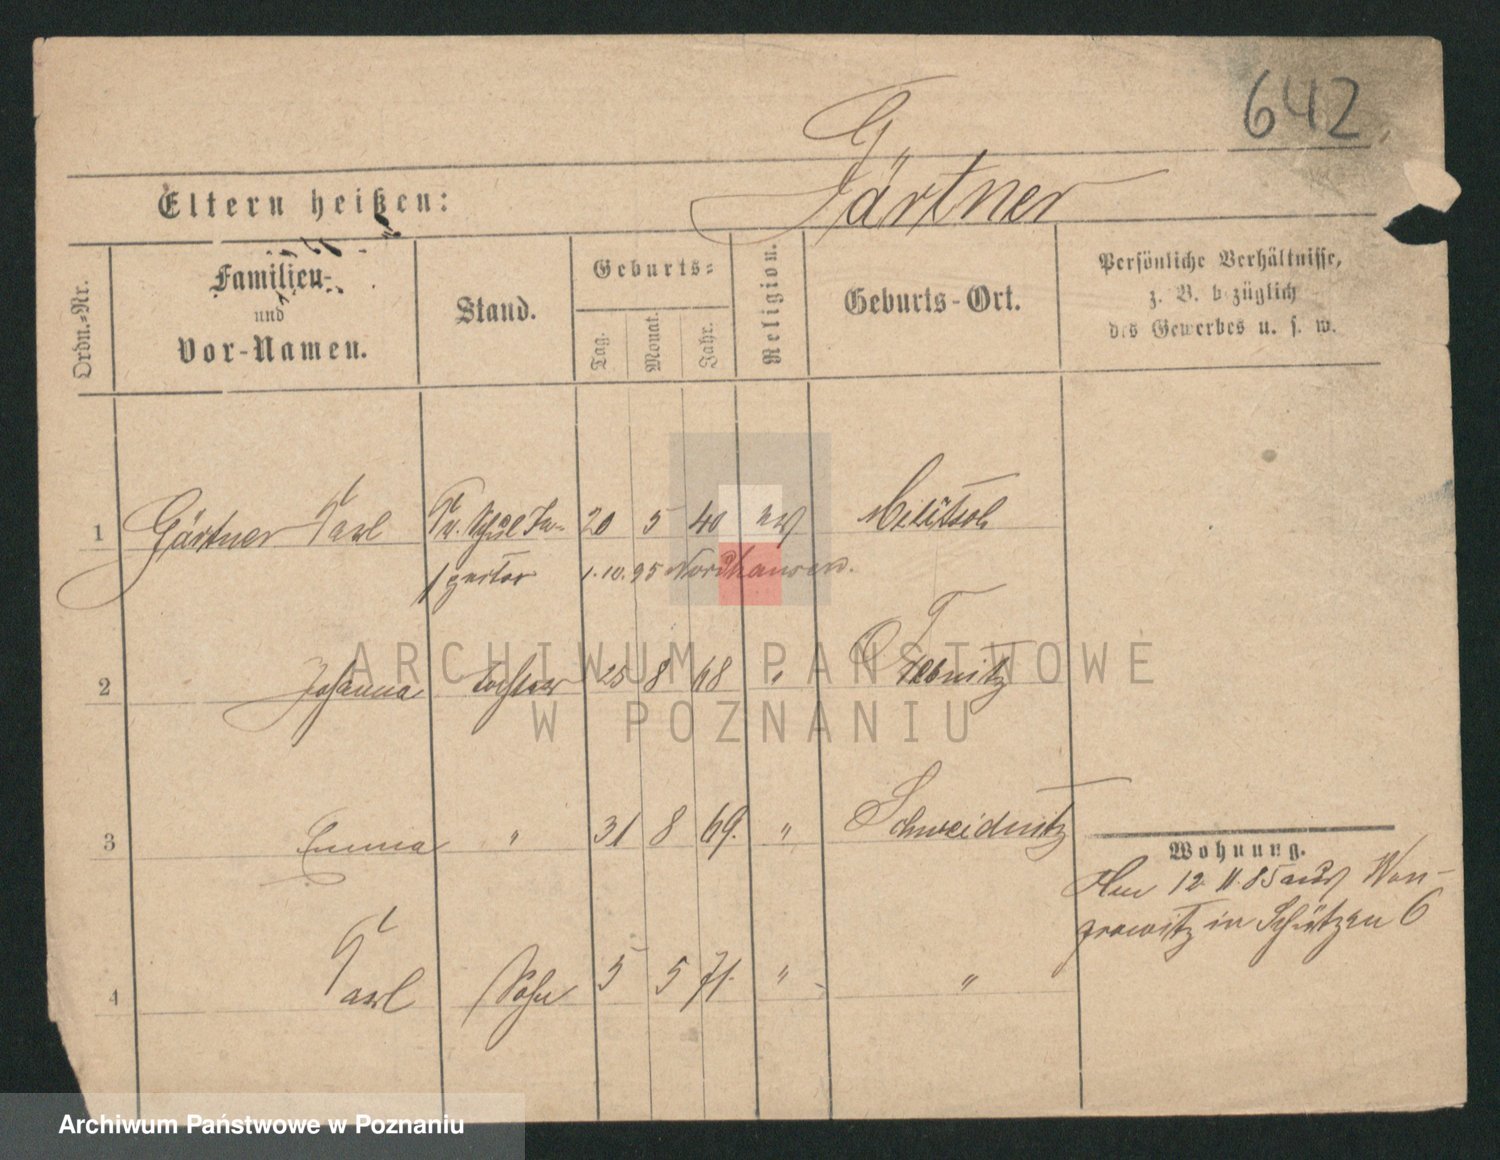 642
Gärtner
Eltern heißen:
Ordn.-Nr.
Familien-
und
Vor-Namen.
Stand.
Geburts-
Tag.
Monat.
Jahr.
Religion.
Geburts-Ort.
Persönliche Verhältnisse,
z. B. bezüglich
des Gewerbes u. s. w.
1 Gärtner Carl Kr. Schul In- 20 5 40 ev Militsch
spector 1.10.95 Nordhausen.
2 Johanna Tochter 25 8 68 " Trebnitz
3 Emma " 31 8 69. " Schweidnitz
4 Carl Sohn 5 5 71. " "
Wohnung.
12. 11. 85 aus Won-
growitz in Schützen 6
ARCHIWUM PAŃSTWOWE
W POZNANIU
Archiwum Państwowe w Poznaniu